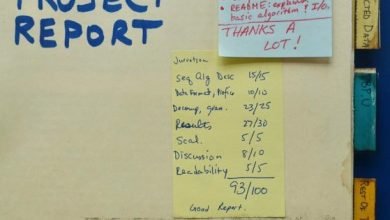 PROJECT
REPORT
• README: explain
basic algorithm? I/O.
THANKS A
LOT!
Seq Alg Desc 15/15
Data Format, Prefix 10/10
Decomp, Gran. 23/25
Results 27/30
Scal. 5/5
Discussion 8/10
Readability 5/5
93/100
Good Report.